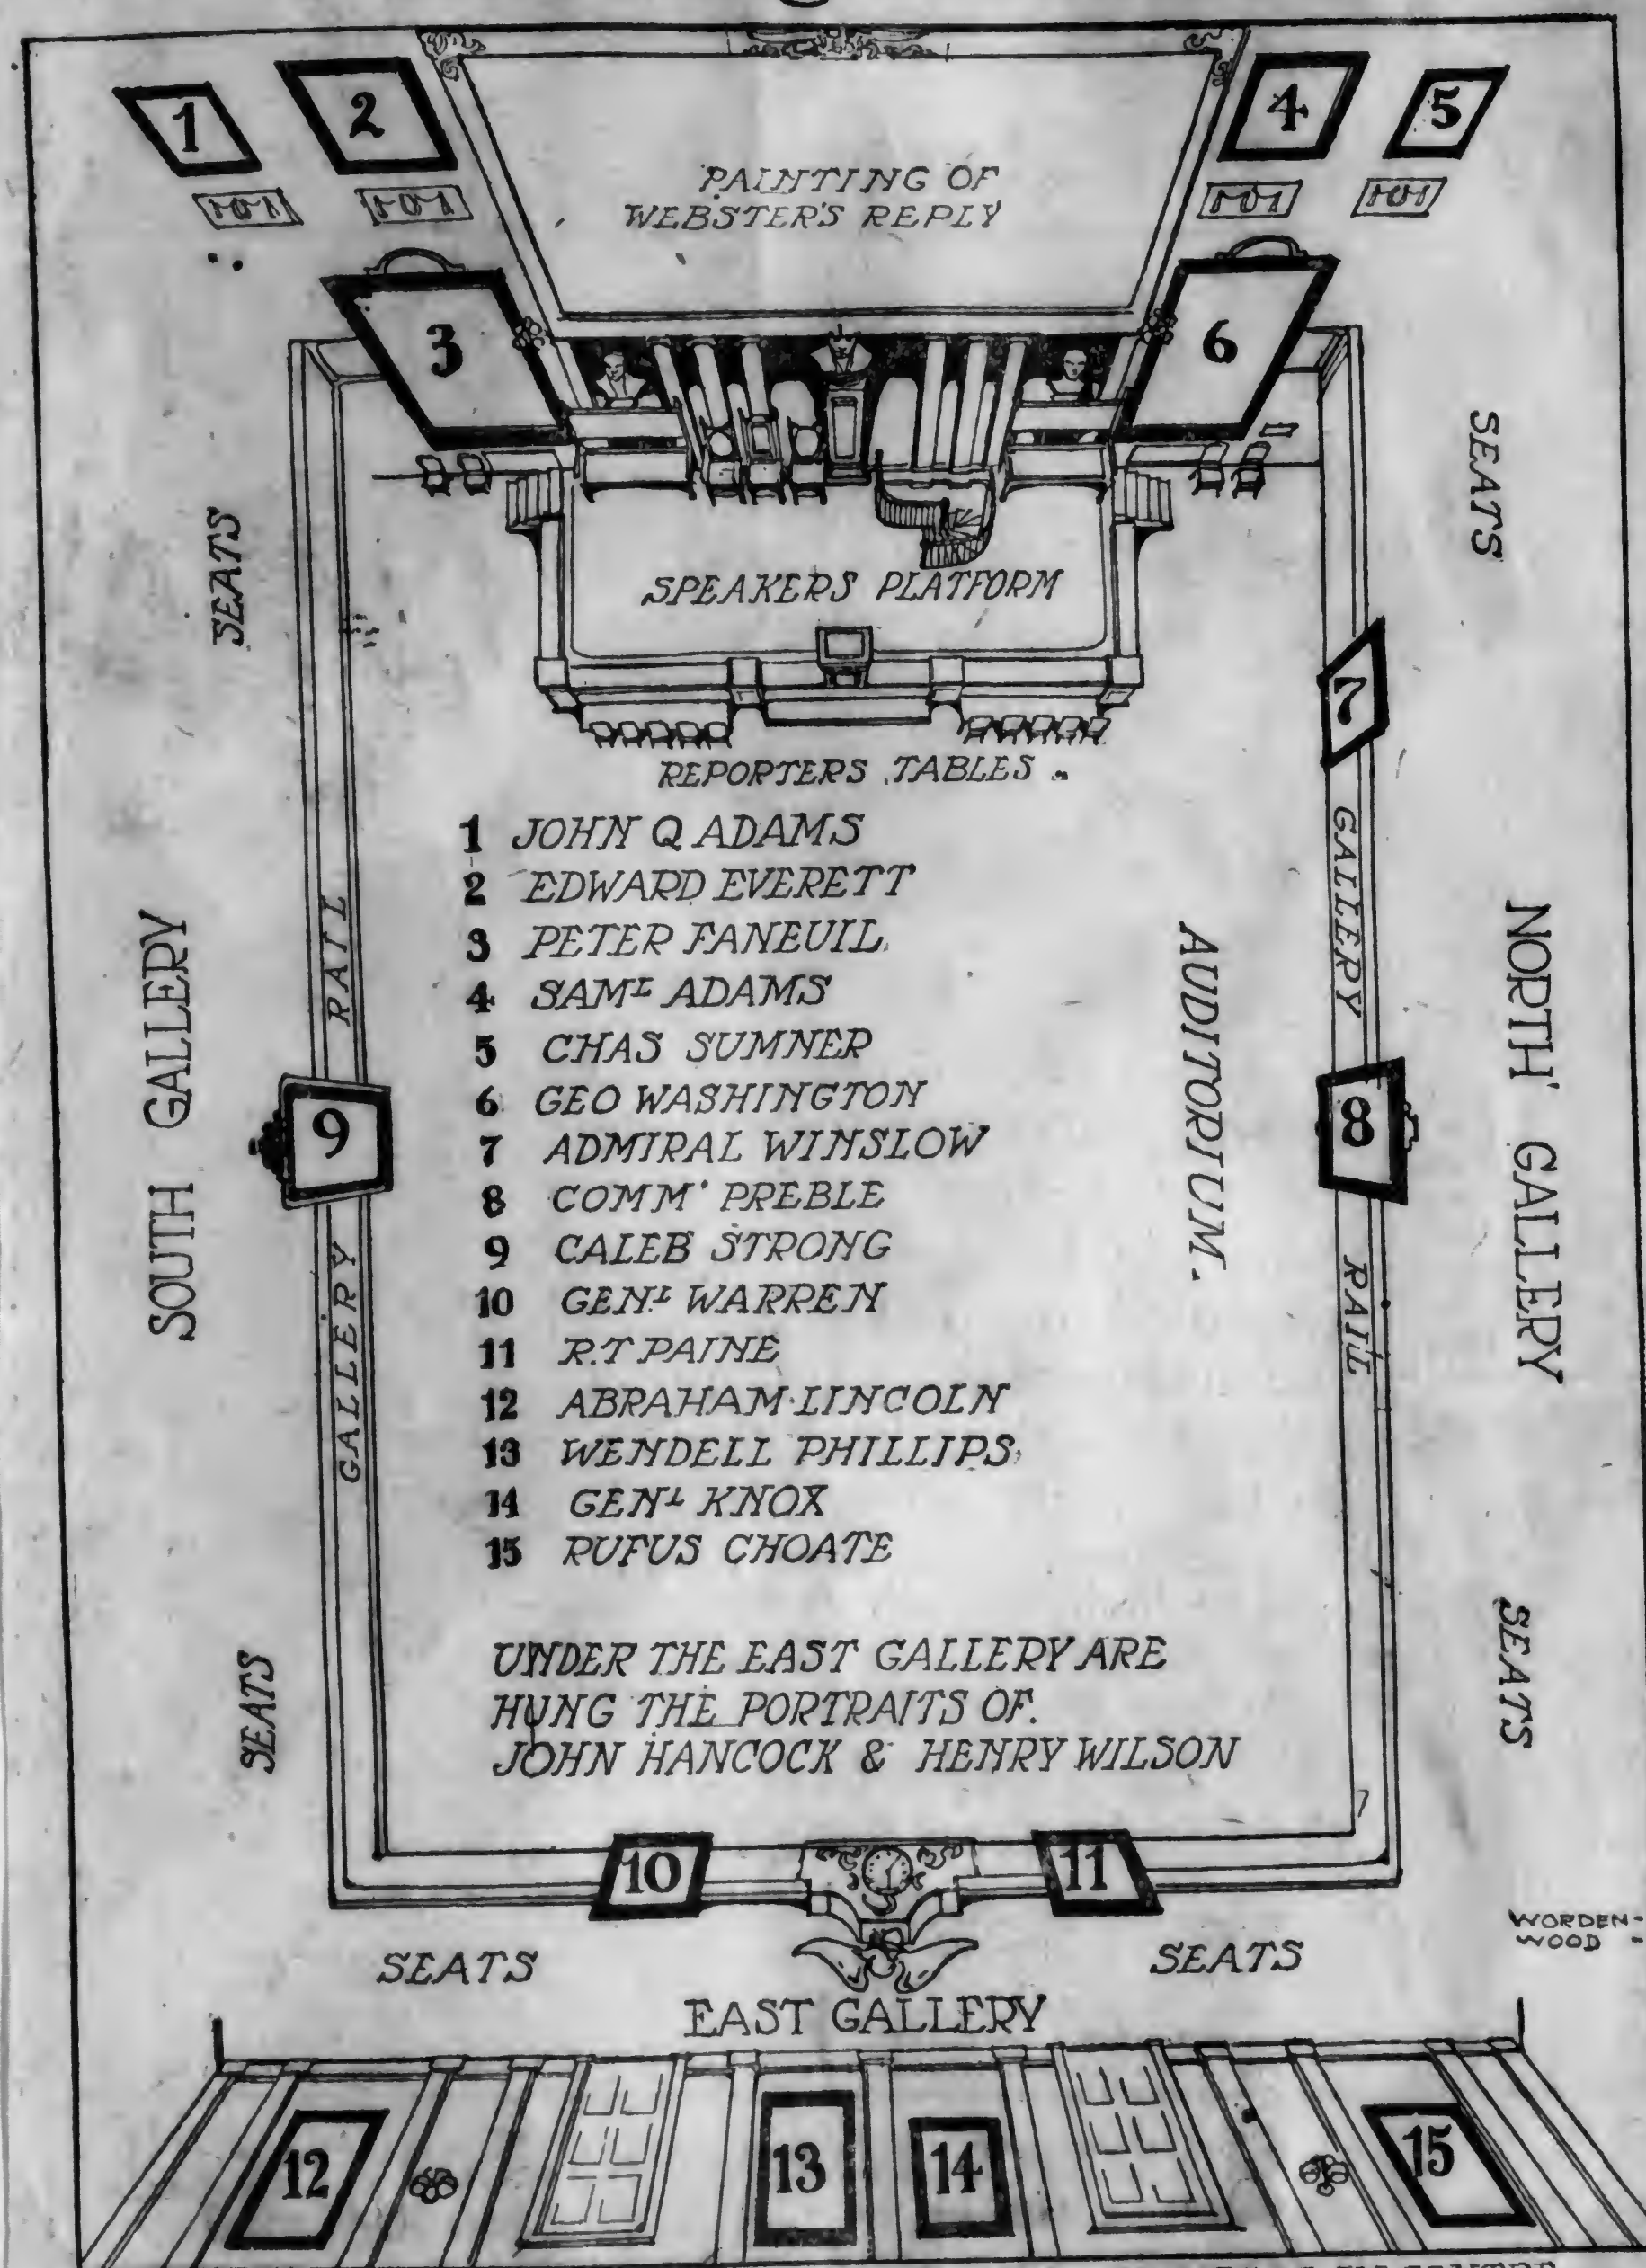 1
2
4
5
PAINTING OF
WEBSTER'S REPLY
3
6
SEATS
SEATS
SPEAKERS PLATFORM
7
REPORTERS TABLES
1 JOHN Q ADAMS
2 EDWARD EVERETT
3 PETER FANEUIL
4 SAML ADAMS
5 CHAS SUMNER
6 GEO WASHINGTON
7 ADMIRAL WINSLOW
8 COMM' PREBLE
9 CALEB STRONG
10 GENL WARREN
11 R.T PAINE
12 ABRAHAM LINCOLN
13 WENDELL PHILLIPS
14 GENL KNOX
15 RUFUS CHOATE
AUDITORIUM.
SOUTH GALLERY
GALLERY RAIL
9
GALLERY RAIL
8
NORTH GALLERY
UNDER THE EAST GALLERY ARE
HUNG THE PORTRAITS OF.
JOHN HANCOCK & HENRY WILSON
SEATS
SEATS
10
11
WORDEN-
WOOD -
SEATS
SEATS
EAST GALLERY
12
13
14
15